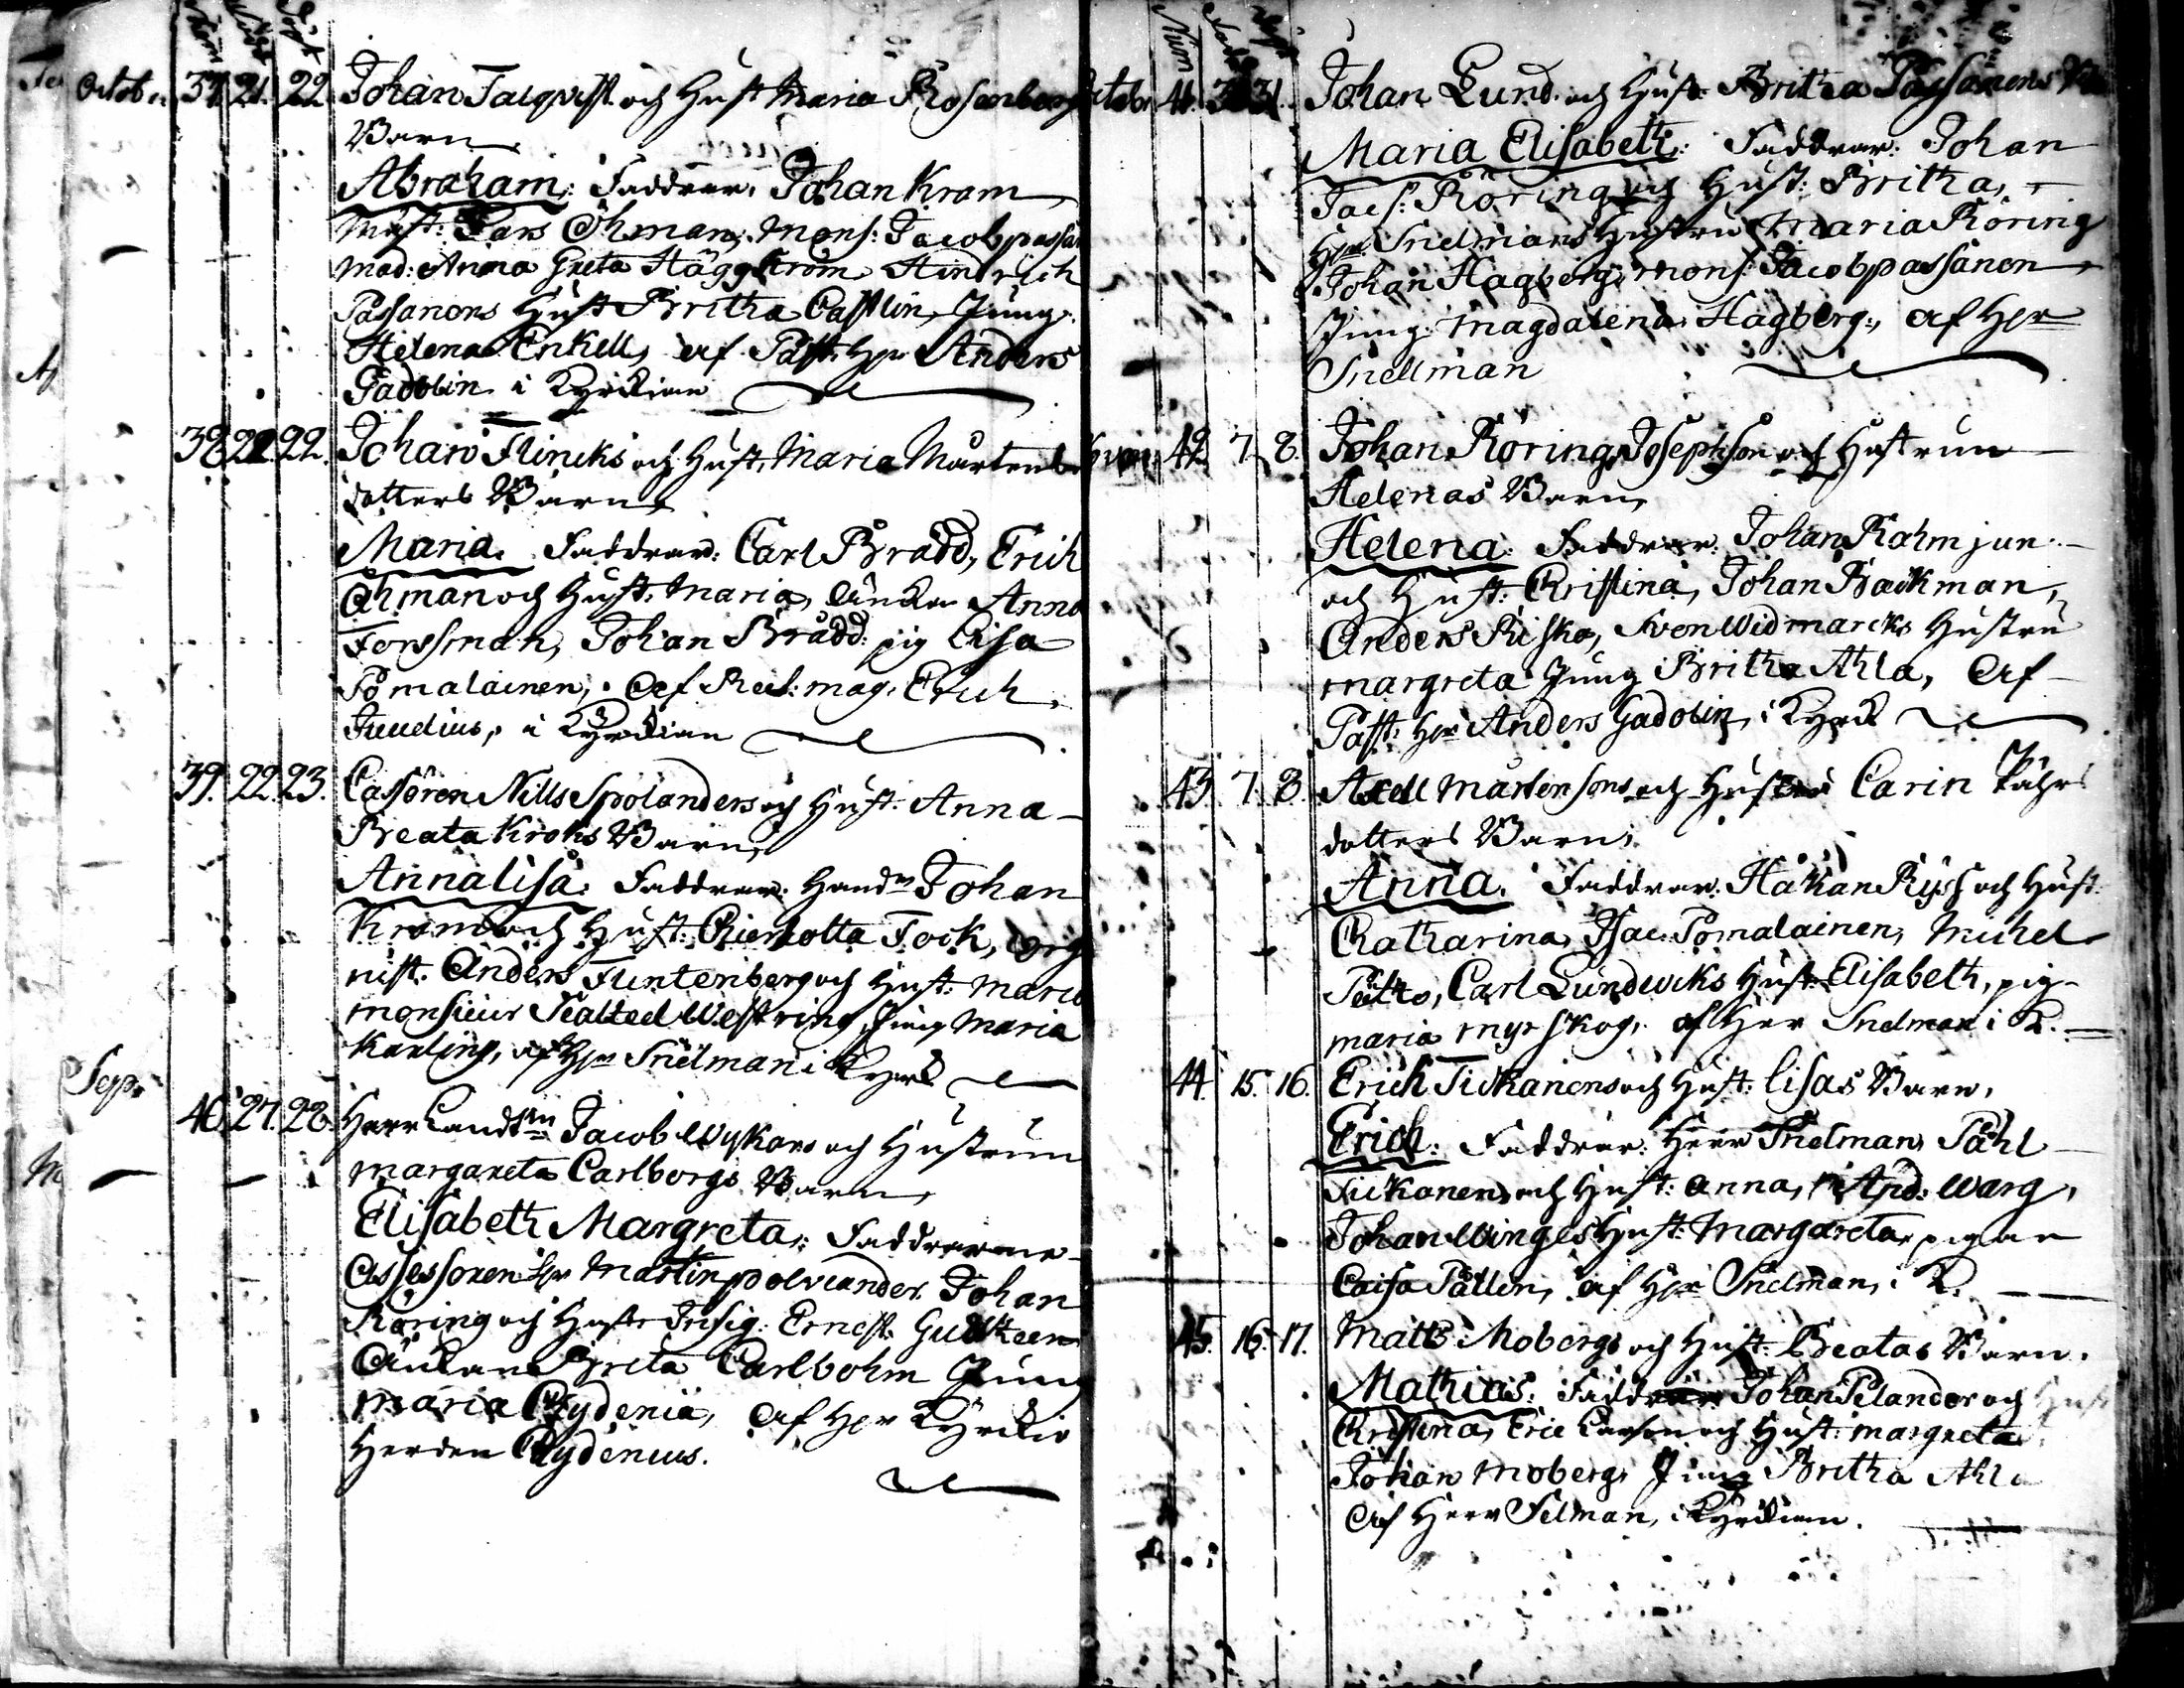 Num Nat Döpt
October 37. 21. 22 Johan Falqvist och Hust Maria Rosenberg
Barn
Abraham; Faddrar, Johan Kram
Must: Lars Öhman, Mons: Jacob passan
Mad: Anna Greta Häggström Hindrich
Passanens Hust Britha Castlin, Jung
Helena Enkell, af Past. Hr Anders
Gadolin i Kyrkian
38 22. 22. Johan Flincks och Hust, Maria Mårtens
dotters Barn
Maria. Faddrar: Carl Brådd, Erich
Öhman och Hust. Maria, Änkan Anna
Forssman, Johan Brådd: pig Lisa
Pomalainen, af Rect: mag. Erich
Juuelius, i Kyrkian
39. 22. 23. Cassören Nills Spolanders och Hust. Anna
Beata Kroks Barn,
Annalisa: Faddrar. Hand Johan
Kram och Hust: Chierlotta Fock, org
nist. Anders Funtenberg och Hust: Maria
monsieur Westring, Jung Maria
Karling, af Hr Snelman i Kyrk
Sepr
40. 27. 28. Herr Landtm Jacob Wykars och Hustrun
margareta Carlborgs Barn,
Elisabeth Margreta; Faddrarne
Assessoren Hr Martin polviander Johan
Röring och Hustr. Insig: Ernest. Gutzeen
Änkan Greta Carlbohm Jung
Maria Chydenia, af Hr Kyrckio
Herden Chydenius.
Num Nat Döpt
October 41. 30 31. Johan Lund och Hust. Britha Passanens
Maria Elisabeth: Faddrar: Johan
Jacs: Röring och Hust: Britha,
Hr Snelmans Hustru Maria Röring
Johan Hagberg, Mons: Jacob passanen
Jung. Magdalena Hagberg, af Hr
Snellman
42 7. 8. Johan Röring, Josephson och Hustrun
Helenas Barn,
Helena. Faddrar. Johan Rahm jun.
och Hust. Christina, Johan Backman,
Anders Risko, Sven Widmarcks Hustru
margreta Jung Britha Ahla, af
Past: Hr Anders Gadolin, i Kyrck
43. 7. 8. Axell Mårtensons och Hustru Carin Påhls
dotters Barn;
Anna. Faddrar. Håkan Ryss och Hust.
Chatharina, Isac Pomalainen, Michel
Pältto, Carl Lundwiks Hust. Elisabeth, pig
maria myrskog, af Herr Snelman i K.
44. 15. 16. Erich Tickanens och Hust: Lisas Barn,
Erich: Faddrar: Herr Snelman, Påhl
Tickanen och Hust: anna, And: Warg,
Johan Winges Hust: Margareta, pigan
Caisa Pållen, af Hr Snelman, i K.
45. 16. 17. Matts Mobergs och Hust: Beatas Barn.
Mathias: Faddrar Johan Pelander och Hust
Christina, Eric Larson och Hust: margreta,
Johan moberg, Jung Britha Ahla
af Herr Selman, i Kyrckian.